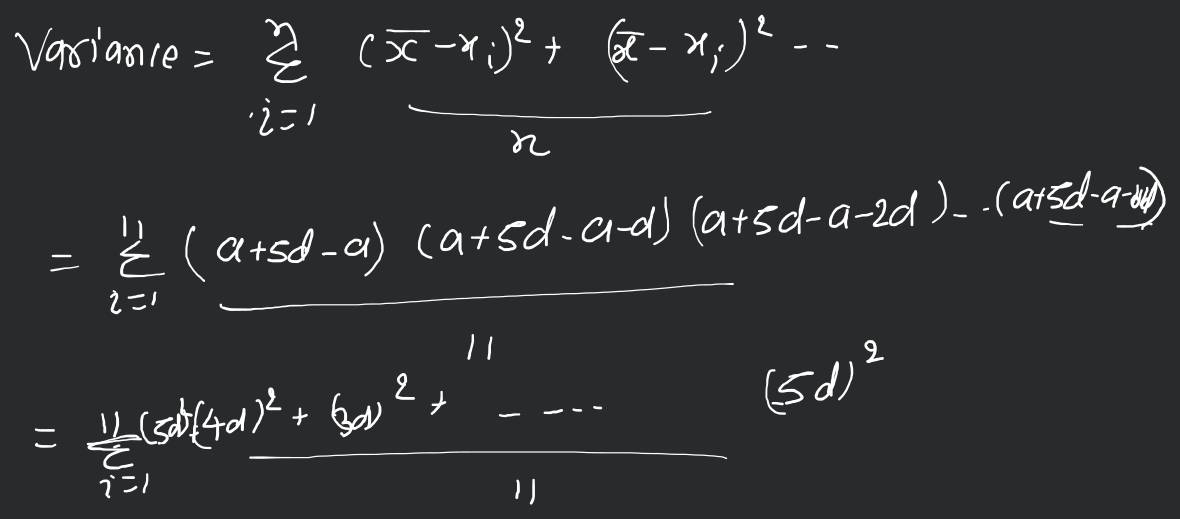 Variance = Σ_{i=1}^{n} ((x̄ - x_i)² + (x̄ - x_i)² - -) / n
= Σ_{i=1}^{11} (a+5d-a) (a+5d-a-d) (a+5d-a-2d) - - (a+5d-a- / 11
= Σ_{i=1}^{11} (5d)² (4d)² + (3d)² + - - - - (5d)² / 11